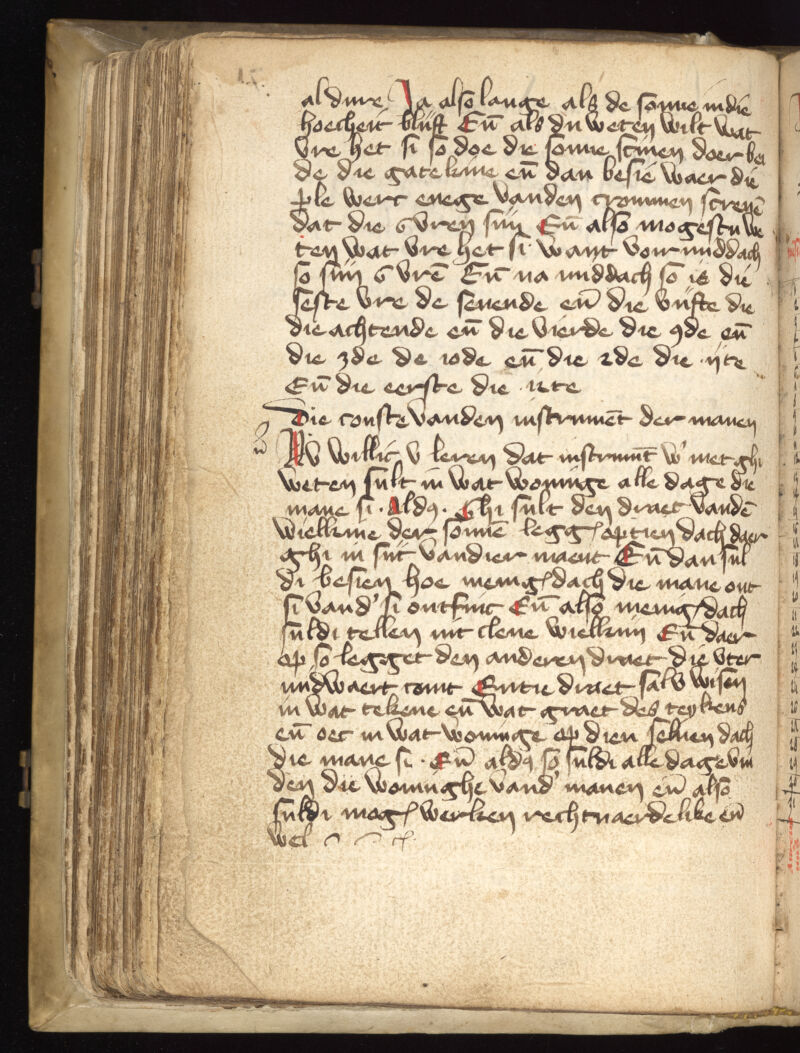 al dure Ja also lange als de sonne in die
hoecheit blijft Eñ als du weten wilt wat
vre het si so doe die sonne scinen doer bei
de die gatekine eñ dan besie waer die
ple werc enege vanden crommen screuē
dat die 6 vren sijn Eñ also mogestu we
ten wat vre het si · want voir middach
so sijn 6 vrē Eñ na middach so is die
seste vre de seuende eñ die vijfte die
die achtende eñ die vierde die 9de eñ
die 3de de 10de eñ die 2de die 11te
Eñ die eerste die 12te
Die conste vanden instrumēt der manen
Nv willic v leren dat instrumēt w' met ghi
weten sult in wat woninge alle dage die
mane si · Aldꝯ · Ghi sult den draet vandē
wielkine der sonnē legg optien dach daer
ghi in sijt van dier maent Eñ dan sul
di besien hoe menig dach die mane out
si vand' si ontfinc Eñ also menig dach
suldi tellen int clene wielkijn Eñ daer
op so legget den anderen draet die vter
midwaert comt Entie draet sal v wisen
in wat tekene eñ wat graet des teykens
eñ oec in wat woninge op dien seluen dach
die mane si · Eñ aldꝯ so suldi alle dage vin
den die woninghe vand' manen eñ also
suldi mog werken rechtuaerdelike eñ
wel